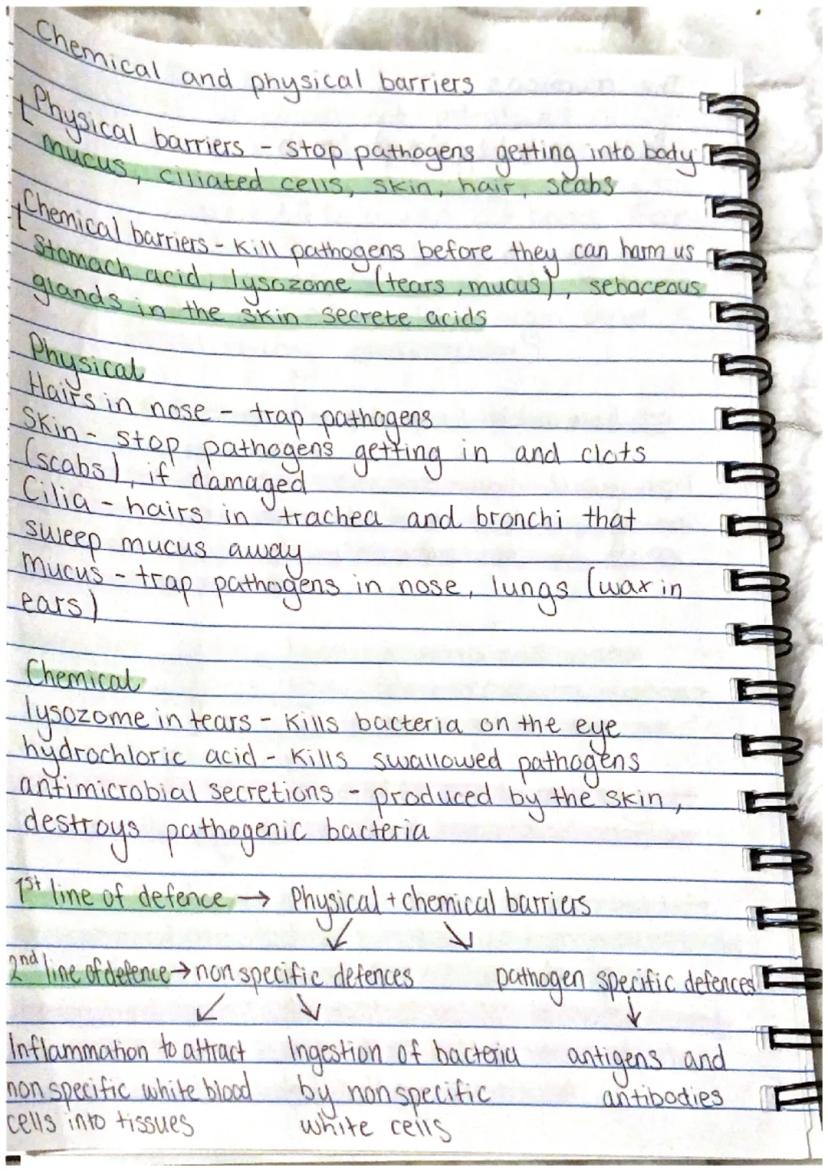 Chemical and physical barriers
Physical barriers - stop pathogens getting into body
mucus, ciliated cells, skin, hair, scabs
Chemical barriers - kill pathogens before they can harm us
stomach acid, lysozome (tears, mucus), sebaceous
glands in the skin secrete acids
Physical
Hairs in nose - trap pathogens
Skin - stop pathogens getting in and clots
(scabs), if damaged
Cilia - hairs in trachea and bronchi that
sweep mucus away
mucus - trap pathogens in nose, lungs (wax in
ears)
Chemical
lysozome in tears - kills bacteria on the eye
hydrochloric acid - kills swallowed pathogens
antimicrobial secretions - produced by the skin,
destroys pathogenic bacteria
1st line of defence → Physical + chemical barriers
2nd line of defence → non specific defences pathogen specific defences
Inflammation to attract Ingestion of bacteria antigens and
non specific white blood by non specific antibodies
cells into tissues white cells